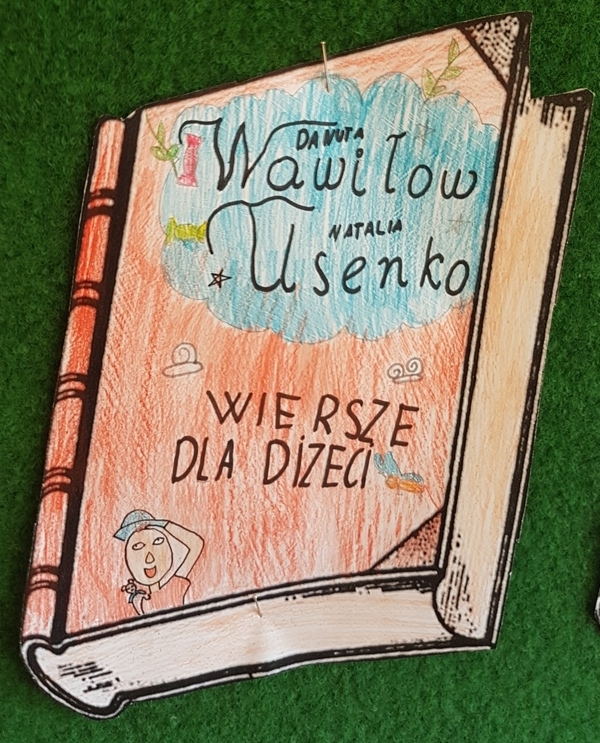 DANUTA
Wawiłow
NATALIA
Usenko
WIERSZE
DLA DIZECI